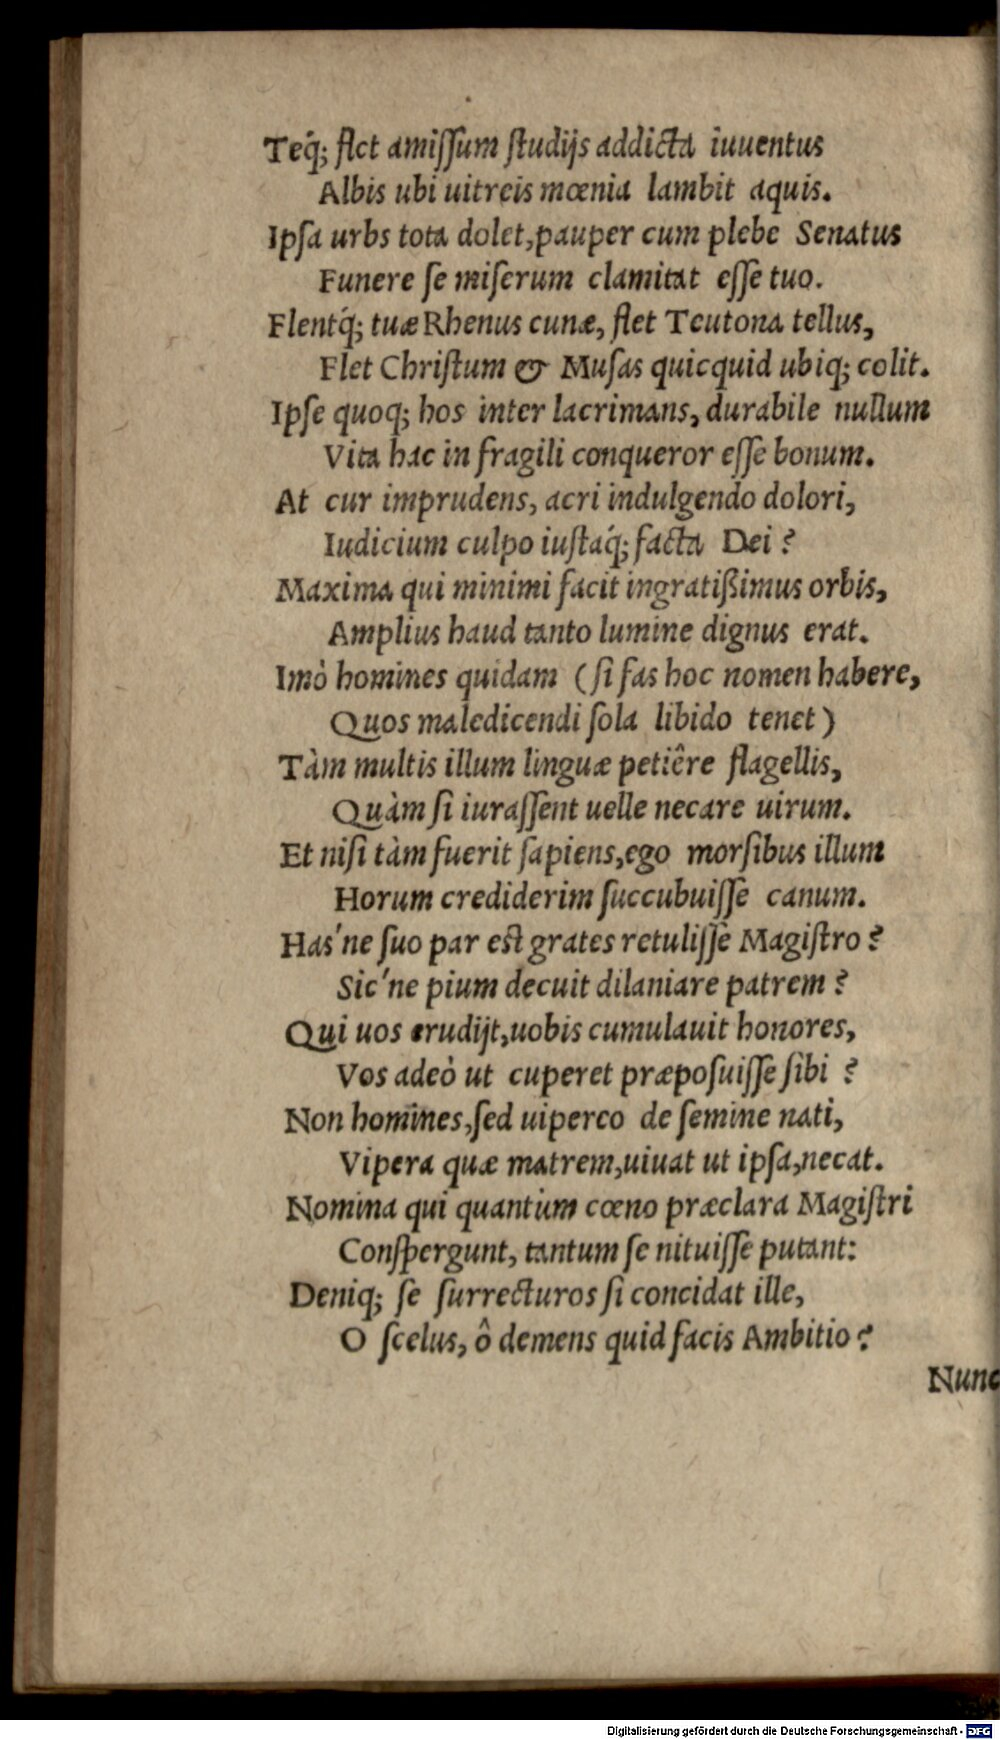 Teq́; flet amiſſum ſtudijs addicta iuuentus
Albis ubi uitreis mœnia lambit aquis.
Ipſa urbs tota dolet, pauper cum plebe Senatus
Funere ſe miſerum clamitat eſſe tuo.
Flentq́; tuæ Rhenus cunæ, flet Teutona tellus,
Flet Chriſtum & Muſas quicquid ubiq; colit.
Ipſe quoq; hos inter lacrimans, durabile nullum
Vita hac in fragili conqueror eſſe bonum.
At cur imprudens, acri indulgendo dolori,
Iudicium culpo iuſtaq́; facta Dei?
Maxima qui minimi facit ingratißimus orbis,
Amplius haud tanto lumine dignus erat.
Imò homines quidam (ſi fas hoc nomen habere,
Quos maledicendi ſola libido tenet)
Tàm multis illum linguæ petiêre flagellis,
Quàm ſi iuraſſent uelle necare uirum.
Et niſi tàm fuerit ſapiens, ego morſibus illum
Horum crediderim ſuccubuiſſe canum.
Has'ne ſuo par eſt grates retuliſſe Magiſtro?
Sic'ne pium decuit dilaniare patrem?
Qui uos erudijt, uobis cumulauit honores,
Vos adeò ut cuperet præpoſuiſſe ſibi?
Non homines, ſed uipereo de ſemine nati,
Vipera quæ matrem, uiuat ut ipſa, necat.
Nomina qui quantùm cœno præclara Magiſtri
Conſpergunt, tantum ſe nituiſſe putant:
Deniq; ſe ſurrecturos ſi concidat ille,
O ſcelus, ô demens quid facis Ambitio?
Nunc
Digitalisierung gefördert durch die Deutsche Forschungsgemeinschaft - DFG